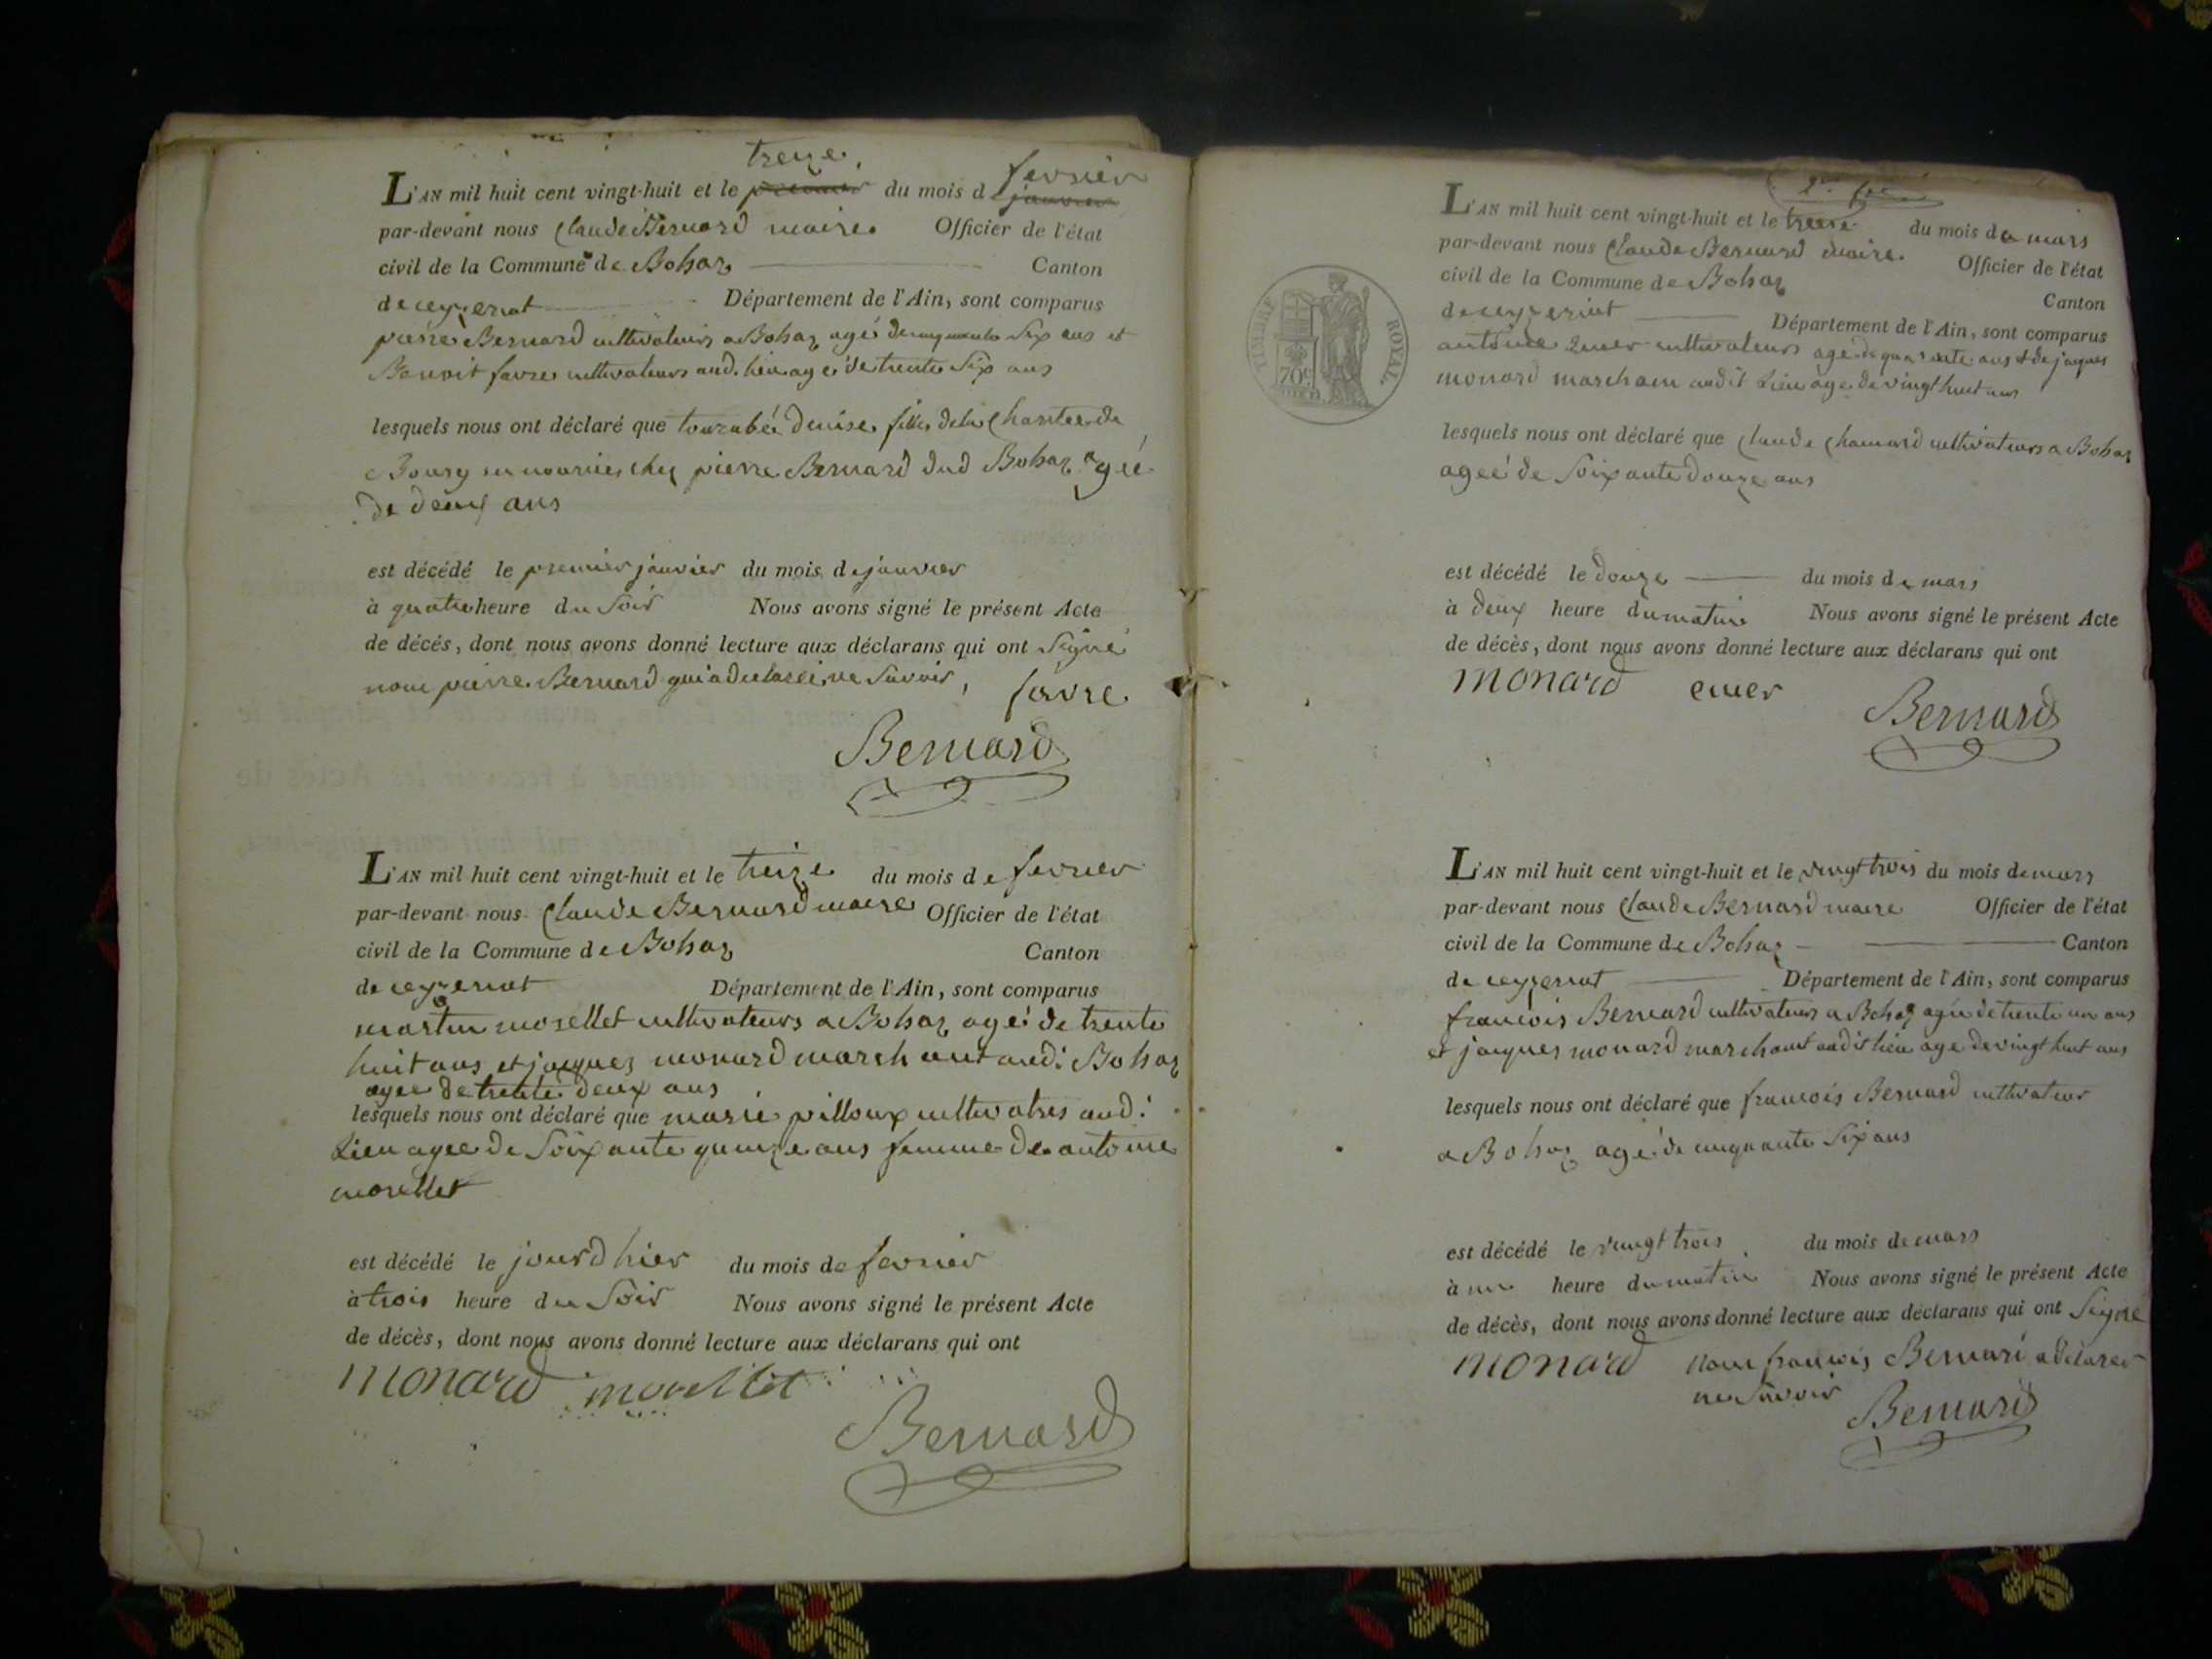 treze
fevrier
L'AN mil huit cent vingt-huit et le premier du mois d janvier
par-devant nous Claude Bernard maire Officier de l'état
civil de la Commune de Bohaz Canton
de ceyzeriat Département de l'Ain, sont comparus
pierre Bernard cultivateurs a Bohaz agé de cinquante Six ans et
Benoit favre cultivateurs aud. lieu agé de trente Six ans
lesquels nous ont déclaré que denise fille de la Charitee de
Bourg en nourrice chez pierre Bernard dud Bohaz ageé
de deux ans
est décédé le premier janvier du mois de janvier
à quatre heure du Soir Nous avons signé le présent Acte
de décés, dont nous avons donné lecture aux déclarans qui ont Signé
nom pierre Bernard qui a declaré ne Savoir, favre
Bernard
L'AN mil huit cent vingt-huit et le treize du mois de fevrier
par-devant nous Claude Bernard maire Officier de l'état
civil de la Commune de Bohaz Canton
de ceyzeriat Département de l'Ain, sont comparus
martin morellet cultivateurs a Bohaz agé de trente
huit ans et jacques monard marchant aud: Bohaz
agee de trente deux ans
lesquels nous ont déclaré que marie pilloux cultivatris aud:
Lieu agee de Soixante quinze ans femme de antoine
morellet
est décédé le jourd hier du mois de fevrier
à trois heure du Soir Nous avons signé le présent Acte
de décès, dont nous avons donné lecture aux déclarans qui ont
monard morellet
Bernard
TIMBRE ROYAL
70c
L'AN mil huit cent vingt-huit et le treize du mois de mars
par-devant nous Claude Bernard maire Officier de l'état
civil de la Commune de Bohaz Canton
de ceyzeriat Département de l'Ain, sont comparus
antoine cultivateurs age de quarante ans et de jaques
monard marcham audit Lieu age de vingt huit ans
lesquels nous ont déclaré que Claude Chanard cultivateurs a Bohaz
ageé de Soixante douze ans
est décédé le douze du mois de mars
à deux heure du matin Nous avons signé le présent Acte
de décès, dont nous avons donné lecture aux déclarans qui ont
monard emer
Bernard
L'AN mil huit cent vingt-huit et le vingt trois du mois de mars
par-devant nous Claude Bernard maire Officier de l'état
civil de la Commune de Bohaz Canton
de ceyzeriat Département de l'Ain, sont comparus
francois Bernard cultivateurs a Bohaz agée de trente un ans
et jacques monard marchant audit lieu age de vingt huit ans
lesquels nous ont déclaré que francois Bernard cultivateur
a Bohaz agé de cinquante Six ans
est décédé le vingt trois du mois de mars
à une heure du matin Nous avons signé le présent Acte
de décès, dont nous avons donné lecture aux déclarans qui ont Signé
monard nom francois Bernard a déclarer
ne Savoir
Bernard